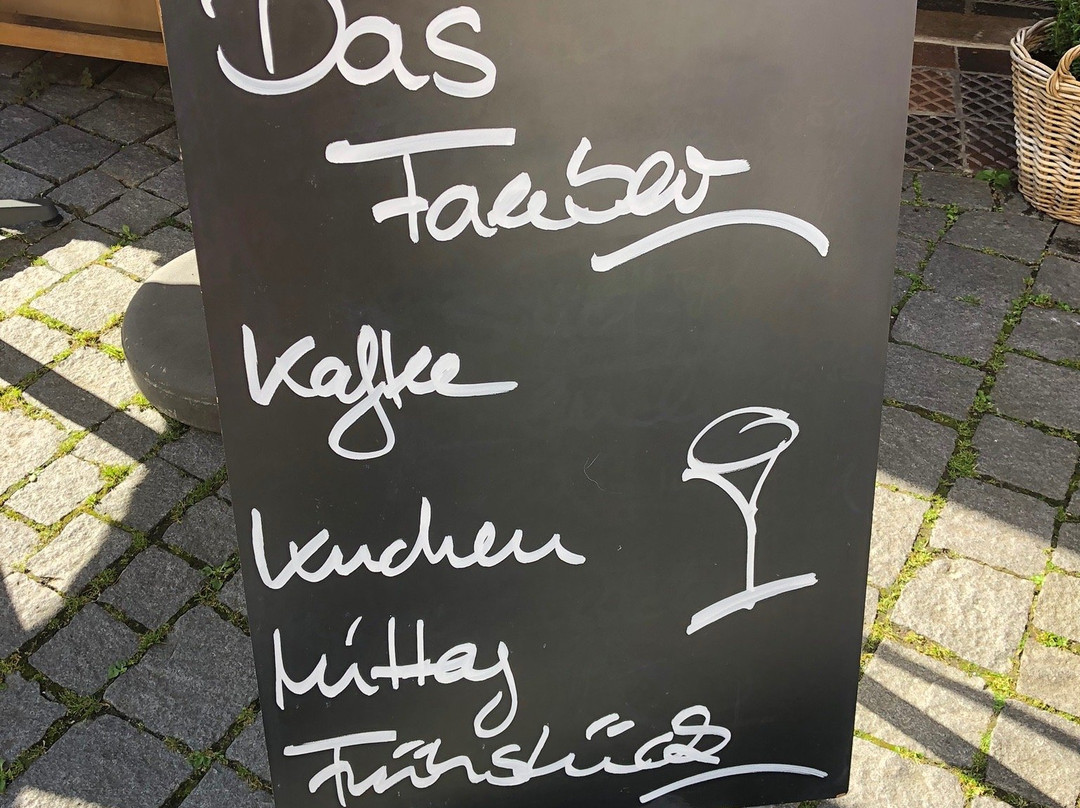 Das
Faerber
Kaffee
Kuchen
Mittag
Frühstück